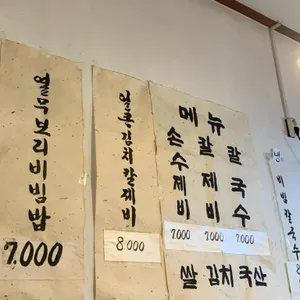 열무보리비빔밥
7.000
얼큰김치칼제비
8.000
메뉴
손수제비
칼제비
칼국수
7.000 7.000 7.000
쌀 김치 국산
냉비빔칼국수